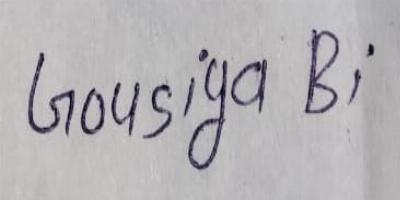 Gousiya Bi